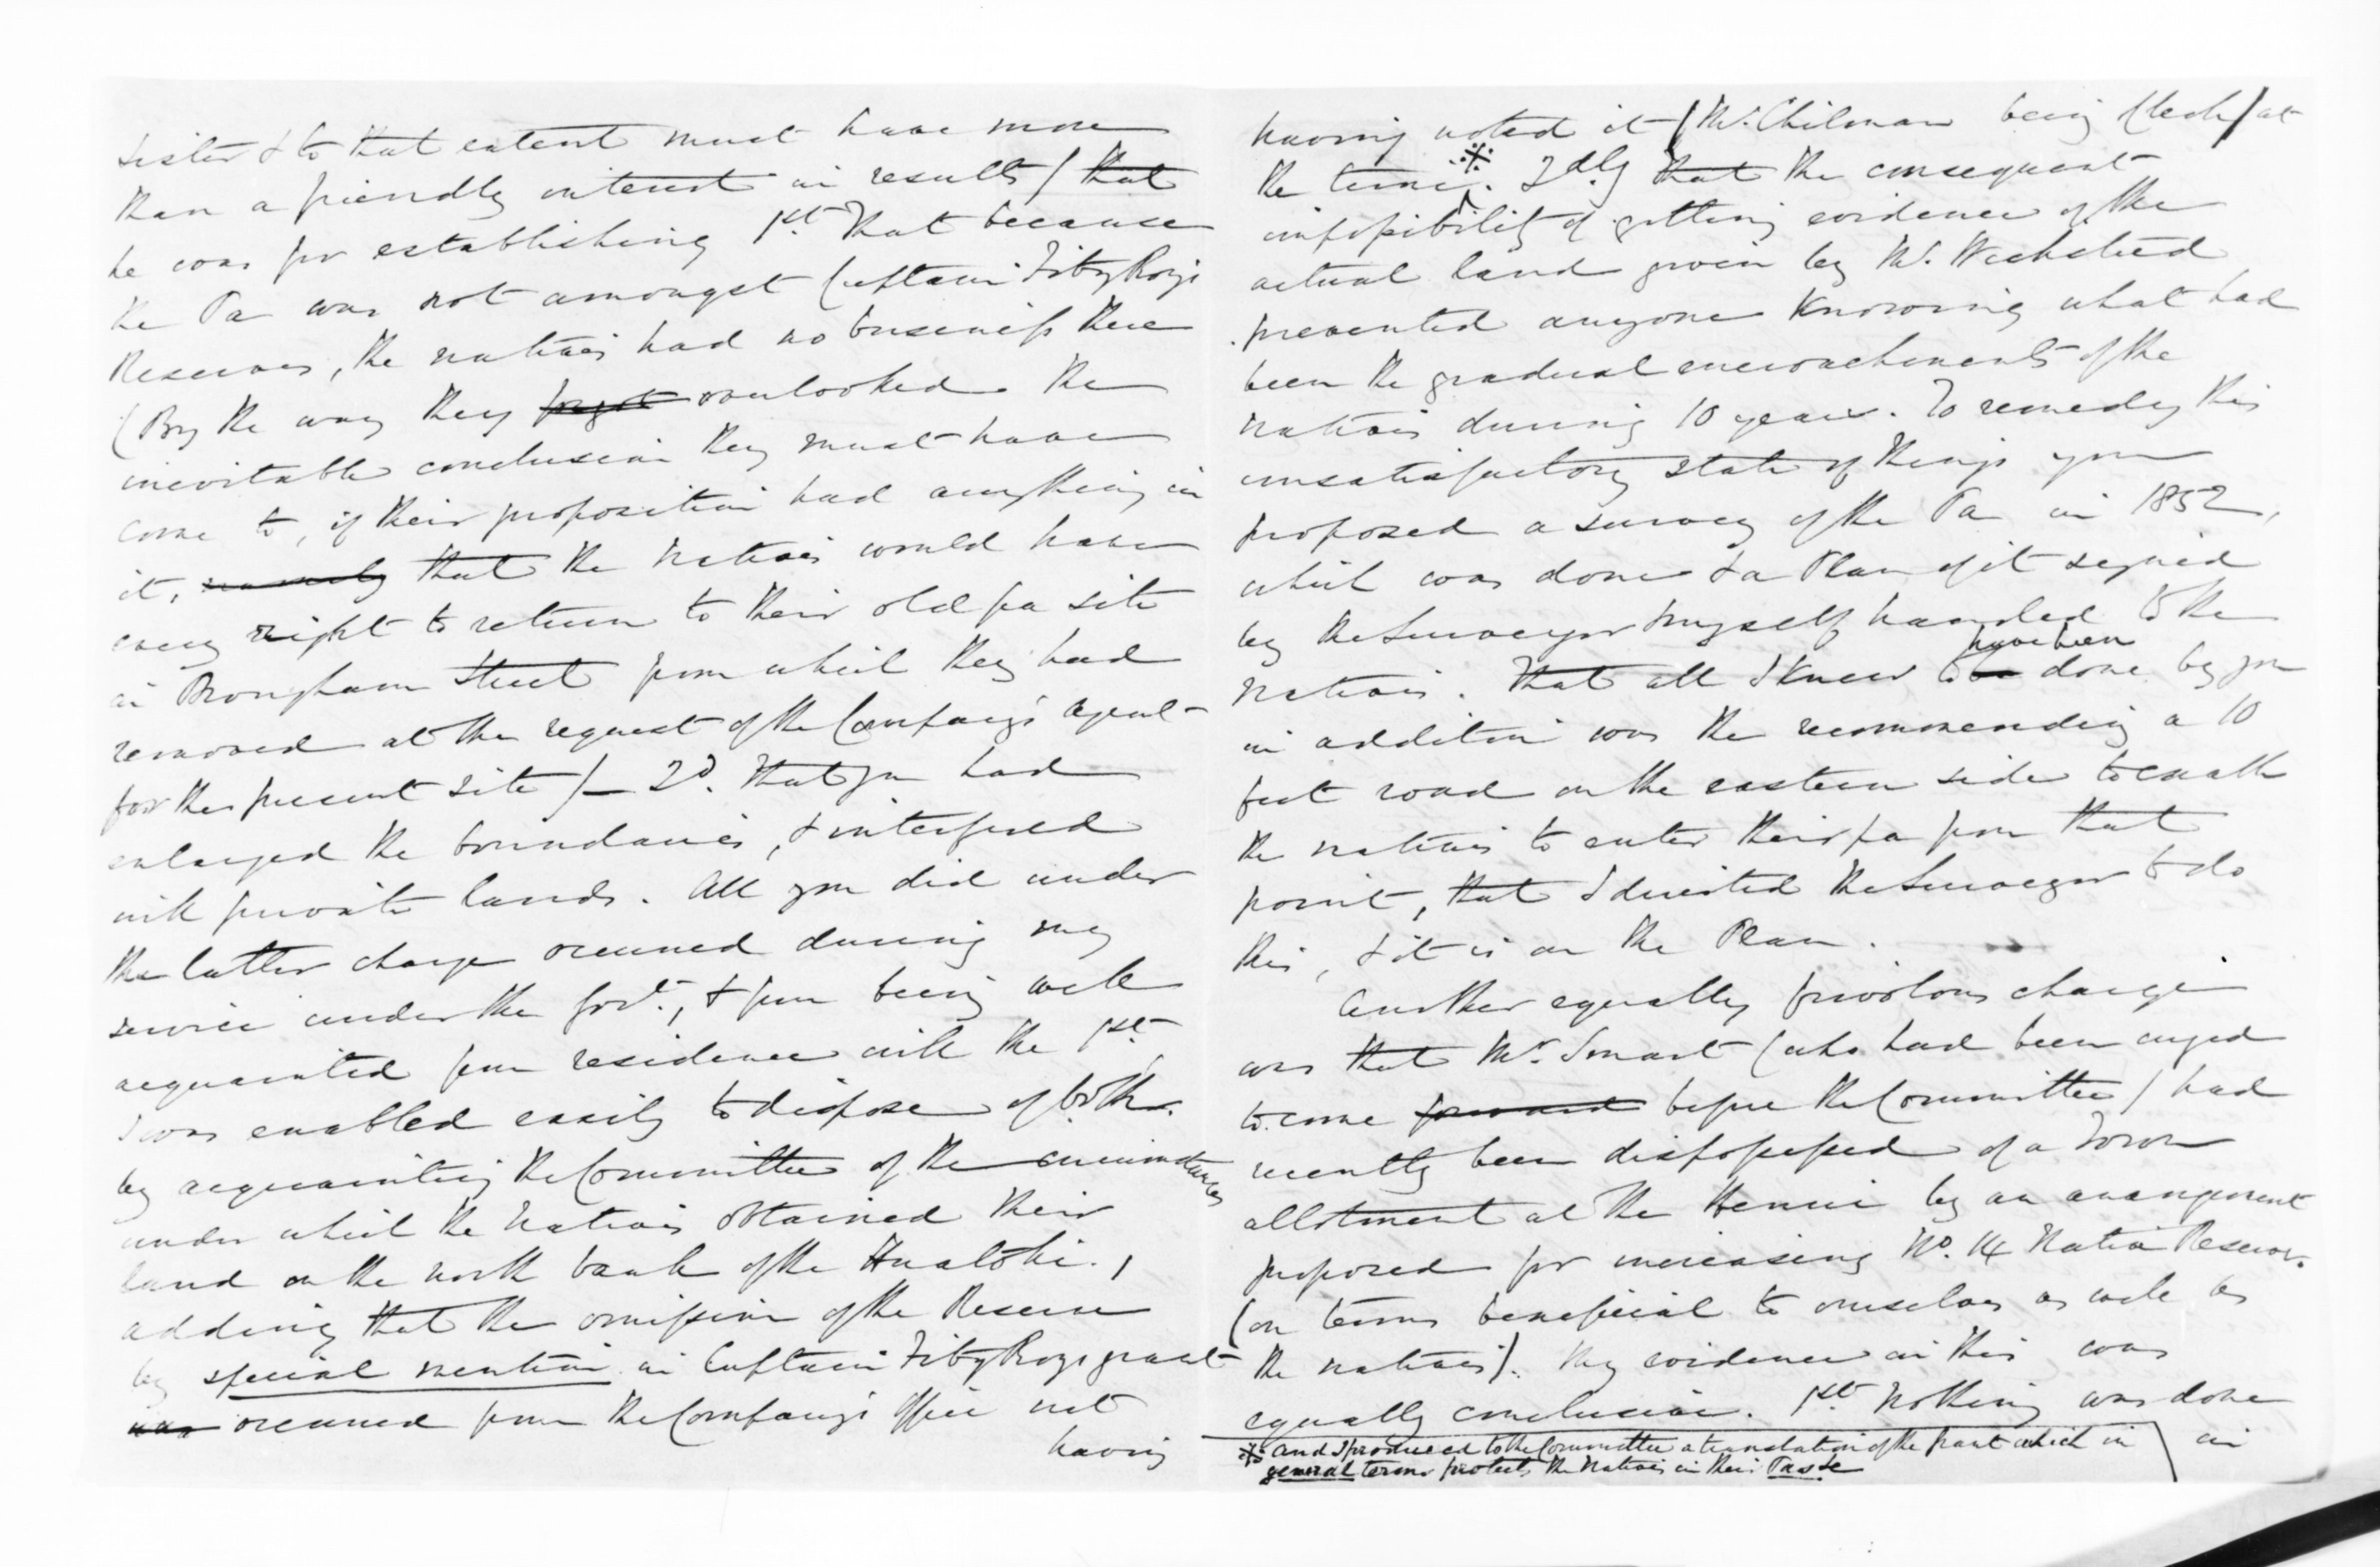 sister & to that extent must have more
than a friendly interest in results) that
he was for establishing 1st. That because
the Pa was not amongst Captain FitzRoy's
Reserves, the natives had no business there
(By the way they forgot overlooked the
inevitable conclusion they must have
come to, if their proposition had anything in
it, namely that the Natives would have
every right to return to their old pa site
in Brougham Street from which they had
removed at the request of the Company's agent
for the present site) – 2d. That you had
enlarged the boundaries, & interfered
with private lands. All you did under
the latter charge occurred during my
service under the Govt., & from being well
acquainted from residence with the 1st,
I was enabled easily to dispose of both.
by acquainting the Committee of the circumstances
under which the Natives obtained their
land on the north bank of the Huatoki,
adding that the omission of the Reserve
by special mention in Captain FitzRoy's grant
was occurred from the Company's Office not
having
having noted it (Mr. Chilman being Clerk) at
the time ※. 2dly that the consequent
impossibility of getting evidence of the
actual land given by Mr. Wicksteed
prevented anyone knowing what had
been the gradual encroachments of the
natives during 10 years. To remedy this
unsatisfactory state of things you
proposed a survey of the Pa in 1852,
which was done & a Plan of it signed
by the Surveyor & myself handed to the
have been
Natives. That all I knew to be done by you
in addition was the recommending a 10
feet road on the eastern side to enable
the natives to enter their pa from that
point, that I directed the Surveyor to do
this, & it is on the Plan.
Another equally frivolous charge
was that Mr. Smart (who had been urged
to come forward before the Committee) had
recently been dispossessed of a Town
allotment at the Henui by an arrangement
proposed for increasing No. 14 Native Reserve.
(on terms beneficial to ourselves as well as
the natives). My evidence in this was
equally conclusive. 1st Nothing was done
in
※ and I produced to the Committee a translation of the Grant which in
general terms protects the Natives in their Pas &c